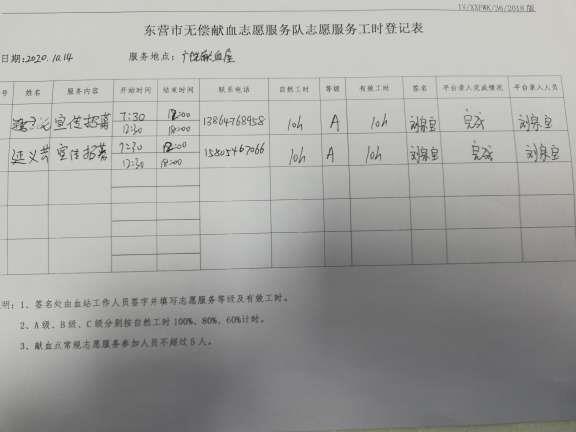 IV/XXFWK/36/2018 版
东营市无偿献血志愿服务队志愿服务工时登记表
日期:2020.10.14 服务地点: 广饶献血屋
号 姓名 服务内容 开始时间 结束时间 联系电话 自然工时 等级 有效工时 签名 平台录入完成情况 平台录入人员
宣传招募 7:30 12:00 13864768958 10h A 10h 刘泉宝 完成 刘泉宝
12:30 18:00
延义芸 宣传招募 7:30 12:00 15805467066 10h A 10h 刘泉宝 完成 刘泉宝
12:30 18:00
明：1、签名处由血站工作人员签字并填写志愿服务等级及有效工时。
2、A级、B级、C级分别按自然工时100%、80%、60%计时。
3、献血点常规志愿服务参加人员不超过5人。